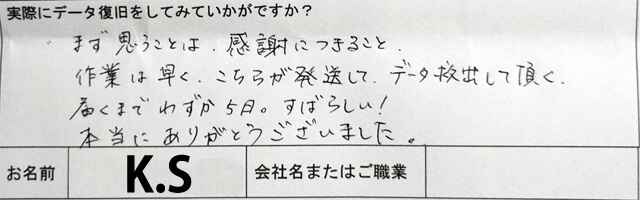 実際にデータ復旧をしてみていかがですか？
まず思うことは、感謝につきること、
作業は早く、こちらが発送して、データ救出して頂く、
届くまでわずか5日。すばらしい！
本当にありがとうございました。
お名前 K.S 会社名またはご職業